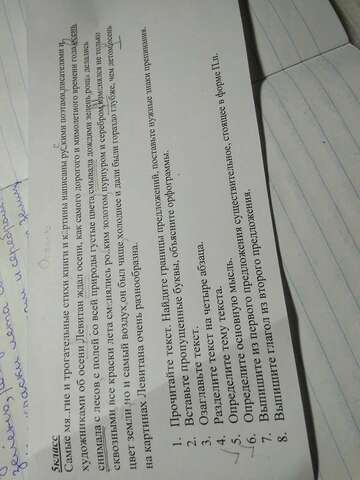 5класс
Самые мя..гие и трогательные стихи книги и к..ртины написаны ру..кими поэтами писателями и
художниками об осени Левитан ждал осени, как самого дорогого и мимолетного времени года осень
снимала с лесов с полей со всей природы густые цвета смывала дождями зелень рощи делались
сквозными все краски лета см..нялись ро..ким золотом пурпуром и серебром изменялся не только
цвет земли но и самый воздух он был чище холоднее и дали были гораздо глубже, чем летом осень
на картинах Левитана очень разнообразна.
1. Прочитайте текст. Найдите границы предложений, поставьте нужные знаки препинания.
2. Вставьте пропущенные буквы, объясните орфограммы.
3. Озаглавьте текст.
4. Разделите текст на четыре абзаца.
5. Определите тему текста.
6. Определите основную мысль.
7. Выпишите из первого предложения существительное, стоящее в форме П.п.
8. Выпишите глагол из второго предложения.